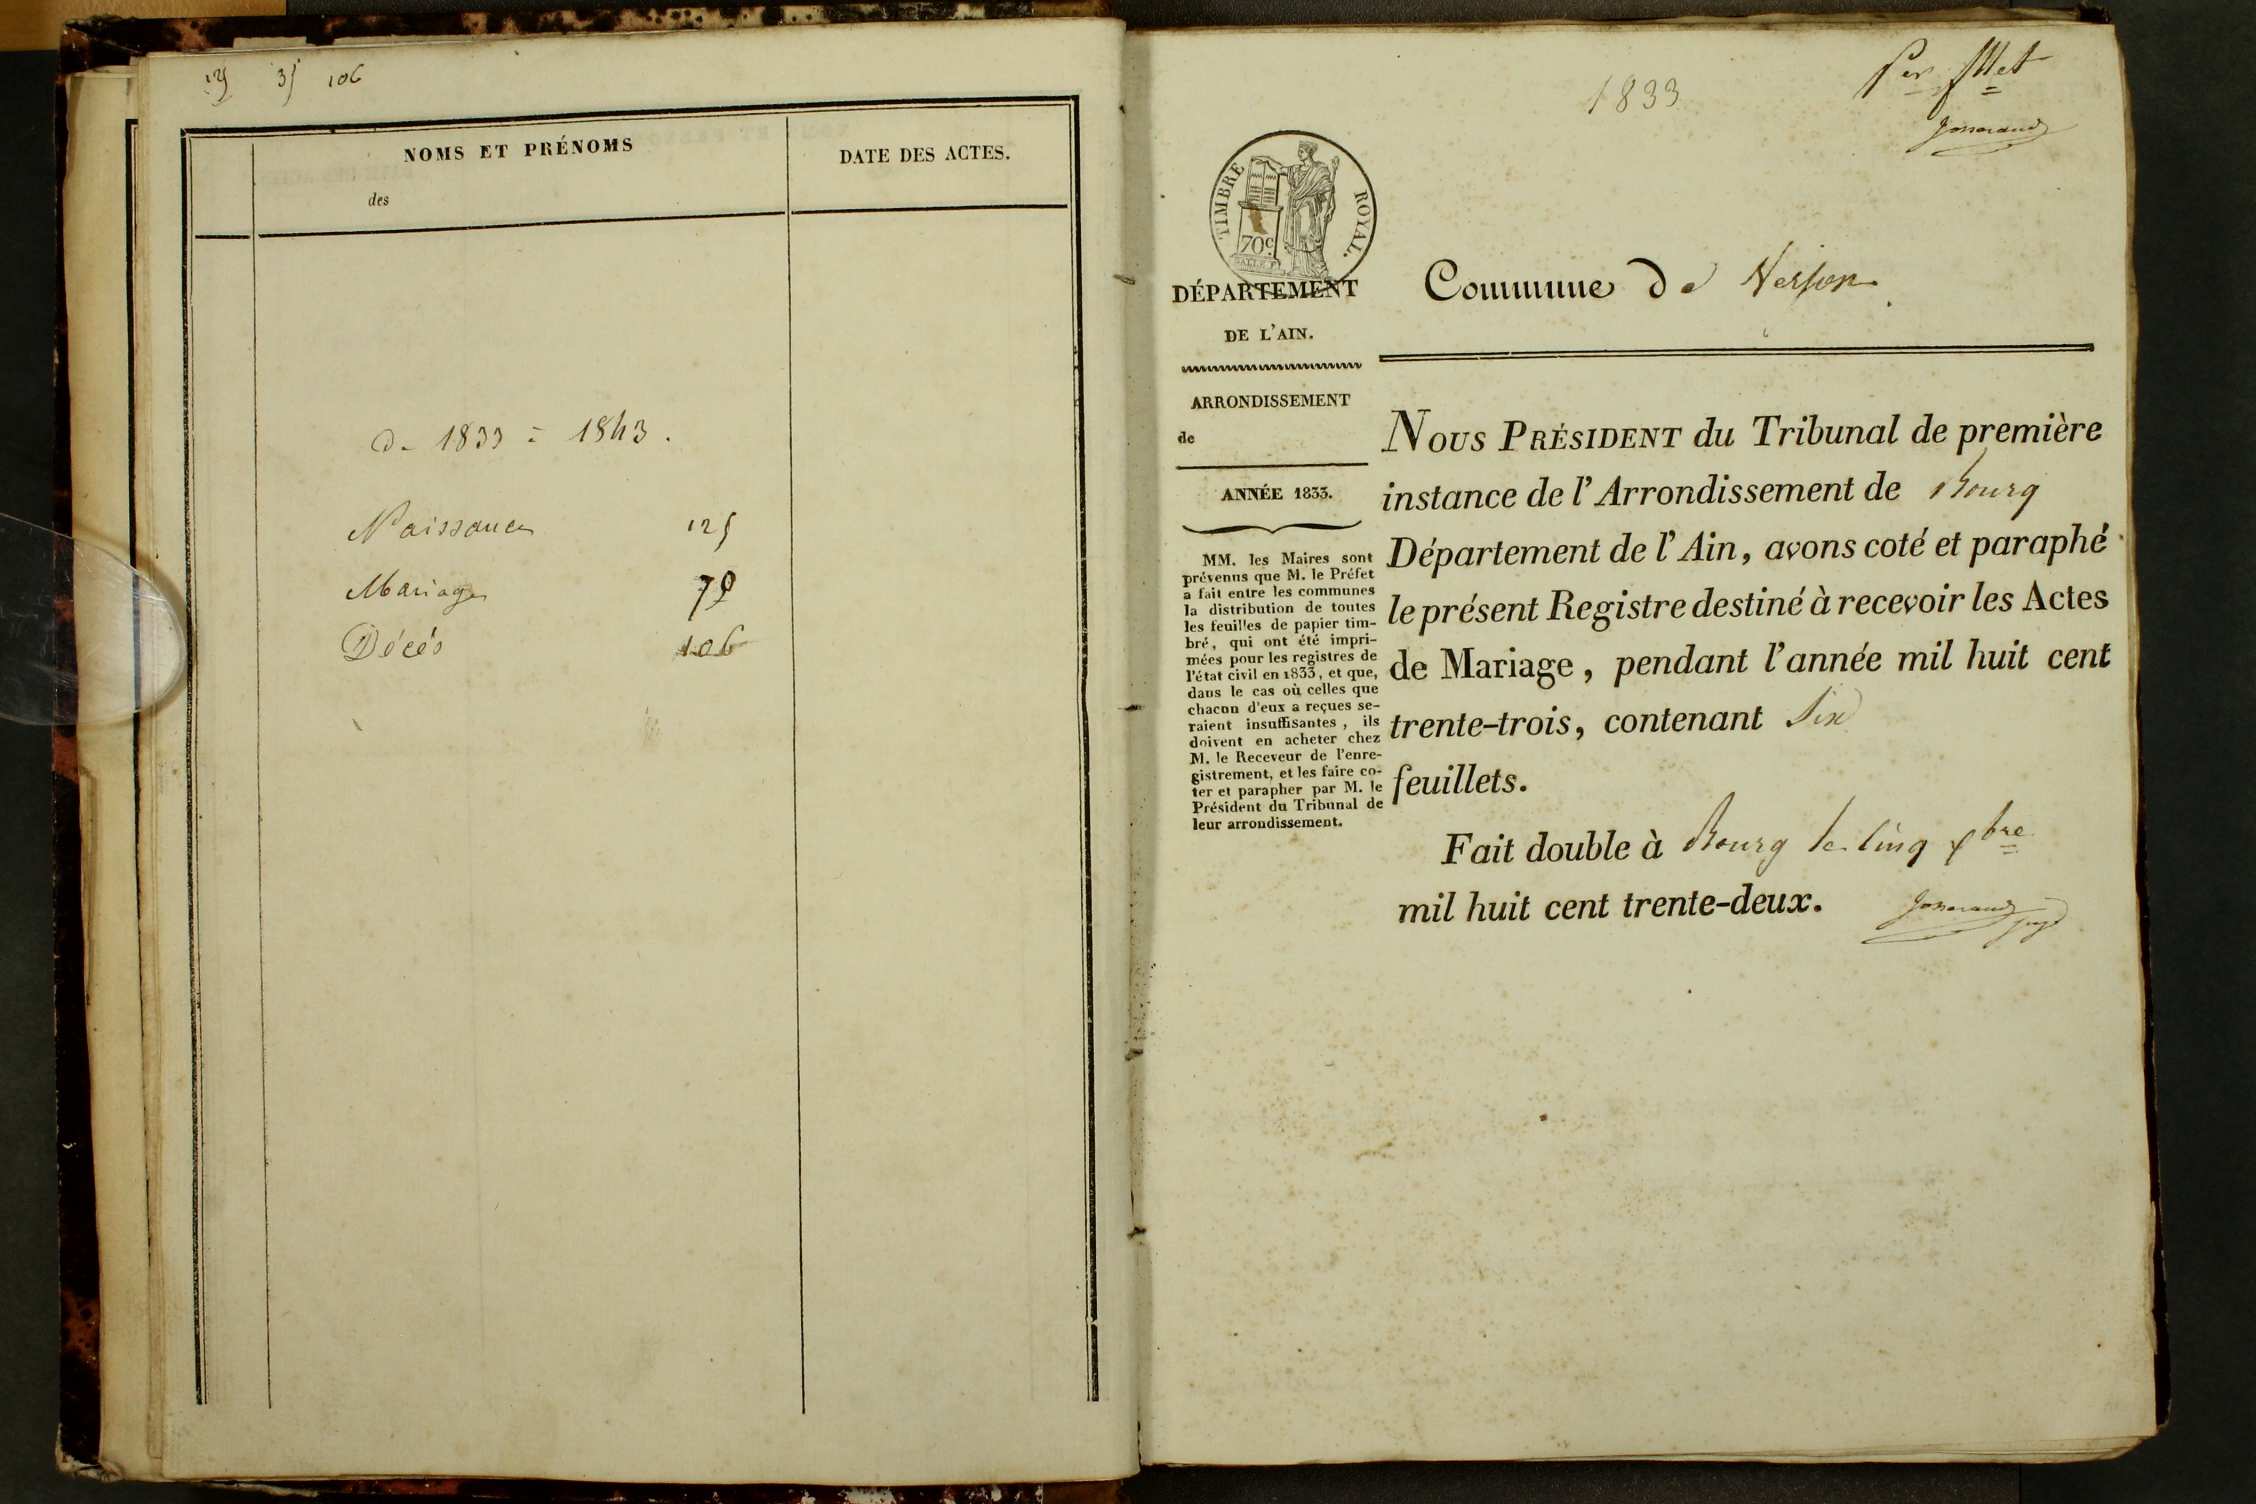 125 35 106
NOMS ET PRÉNOMS
des
DATE DES ACTES.
de 1833 = 1843.
Naissances 125
Mariages
Décès 106
1833
Per fllet
Josserand
TIMBRE ROYAL.
70c.
DÉPARTEMENT
DE L'AIN.
ARRONDISSEMENT
de
ANNÉE 1833.
MM. les Maires sont
prévenus que M. le Préfet
a fait entre les communes
la distribution de toutes
les feuilles de papier tim-
bré, qui ont été impri-
mées pour les registres de
l'état civil en 1833, et que,
dans le cas où celles que
chacun d'eux a reçues se-
raient insuffisantes, ils
doivent en acheter chez
M. le Receveur de l'enre-
gistrement, et les faire co-
ter et parapher par M. le
Président du Tribunal de
leur arrondissement.
Commune de
NOUS PRÉSIDENT du Tribunal de première
instance de l'Arrondissement de Bourg
Département de l'Ain, avons coté et paraphé
le présent Registre destiné à recevoir les Actes
de Mariage, pendant l'année mil huit cent
trente-trois, contenant Six
feuillets.
Fait double à Bourg le Cinq xbre
mil huit cent trente-deux.
Josserand juge